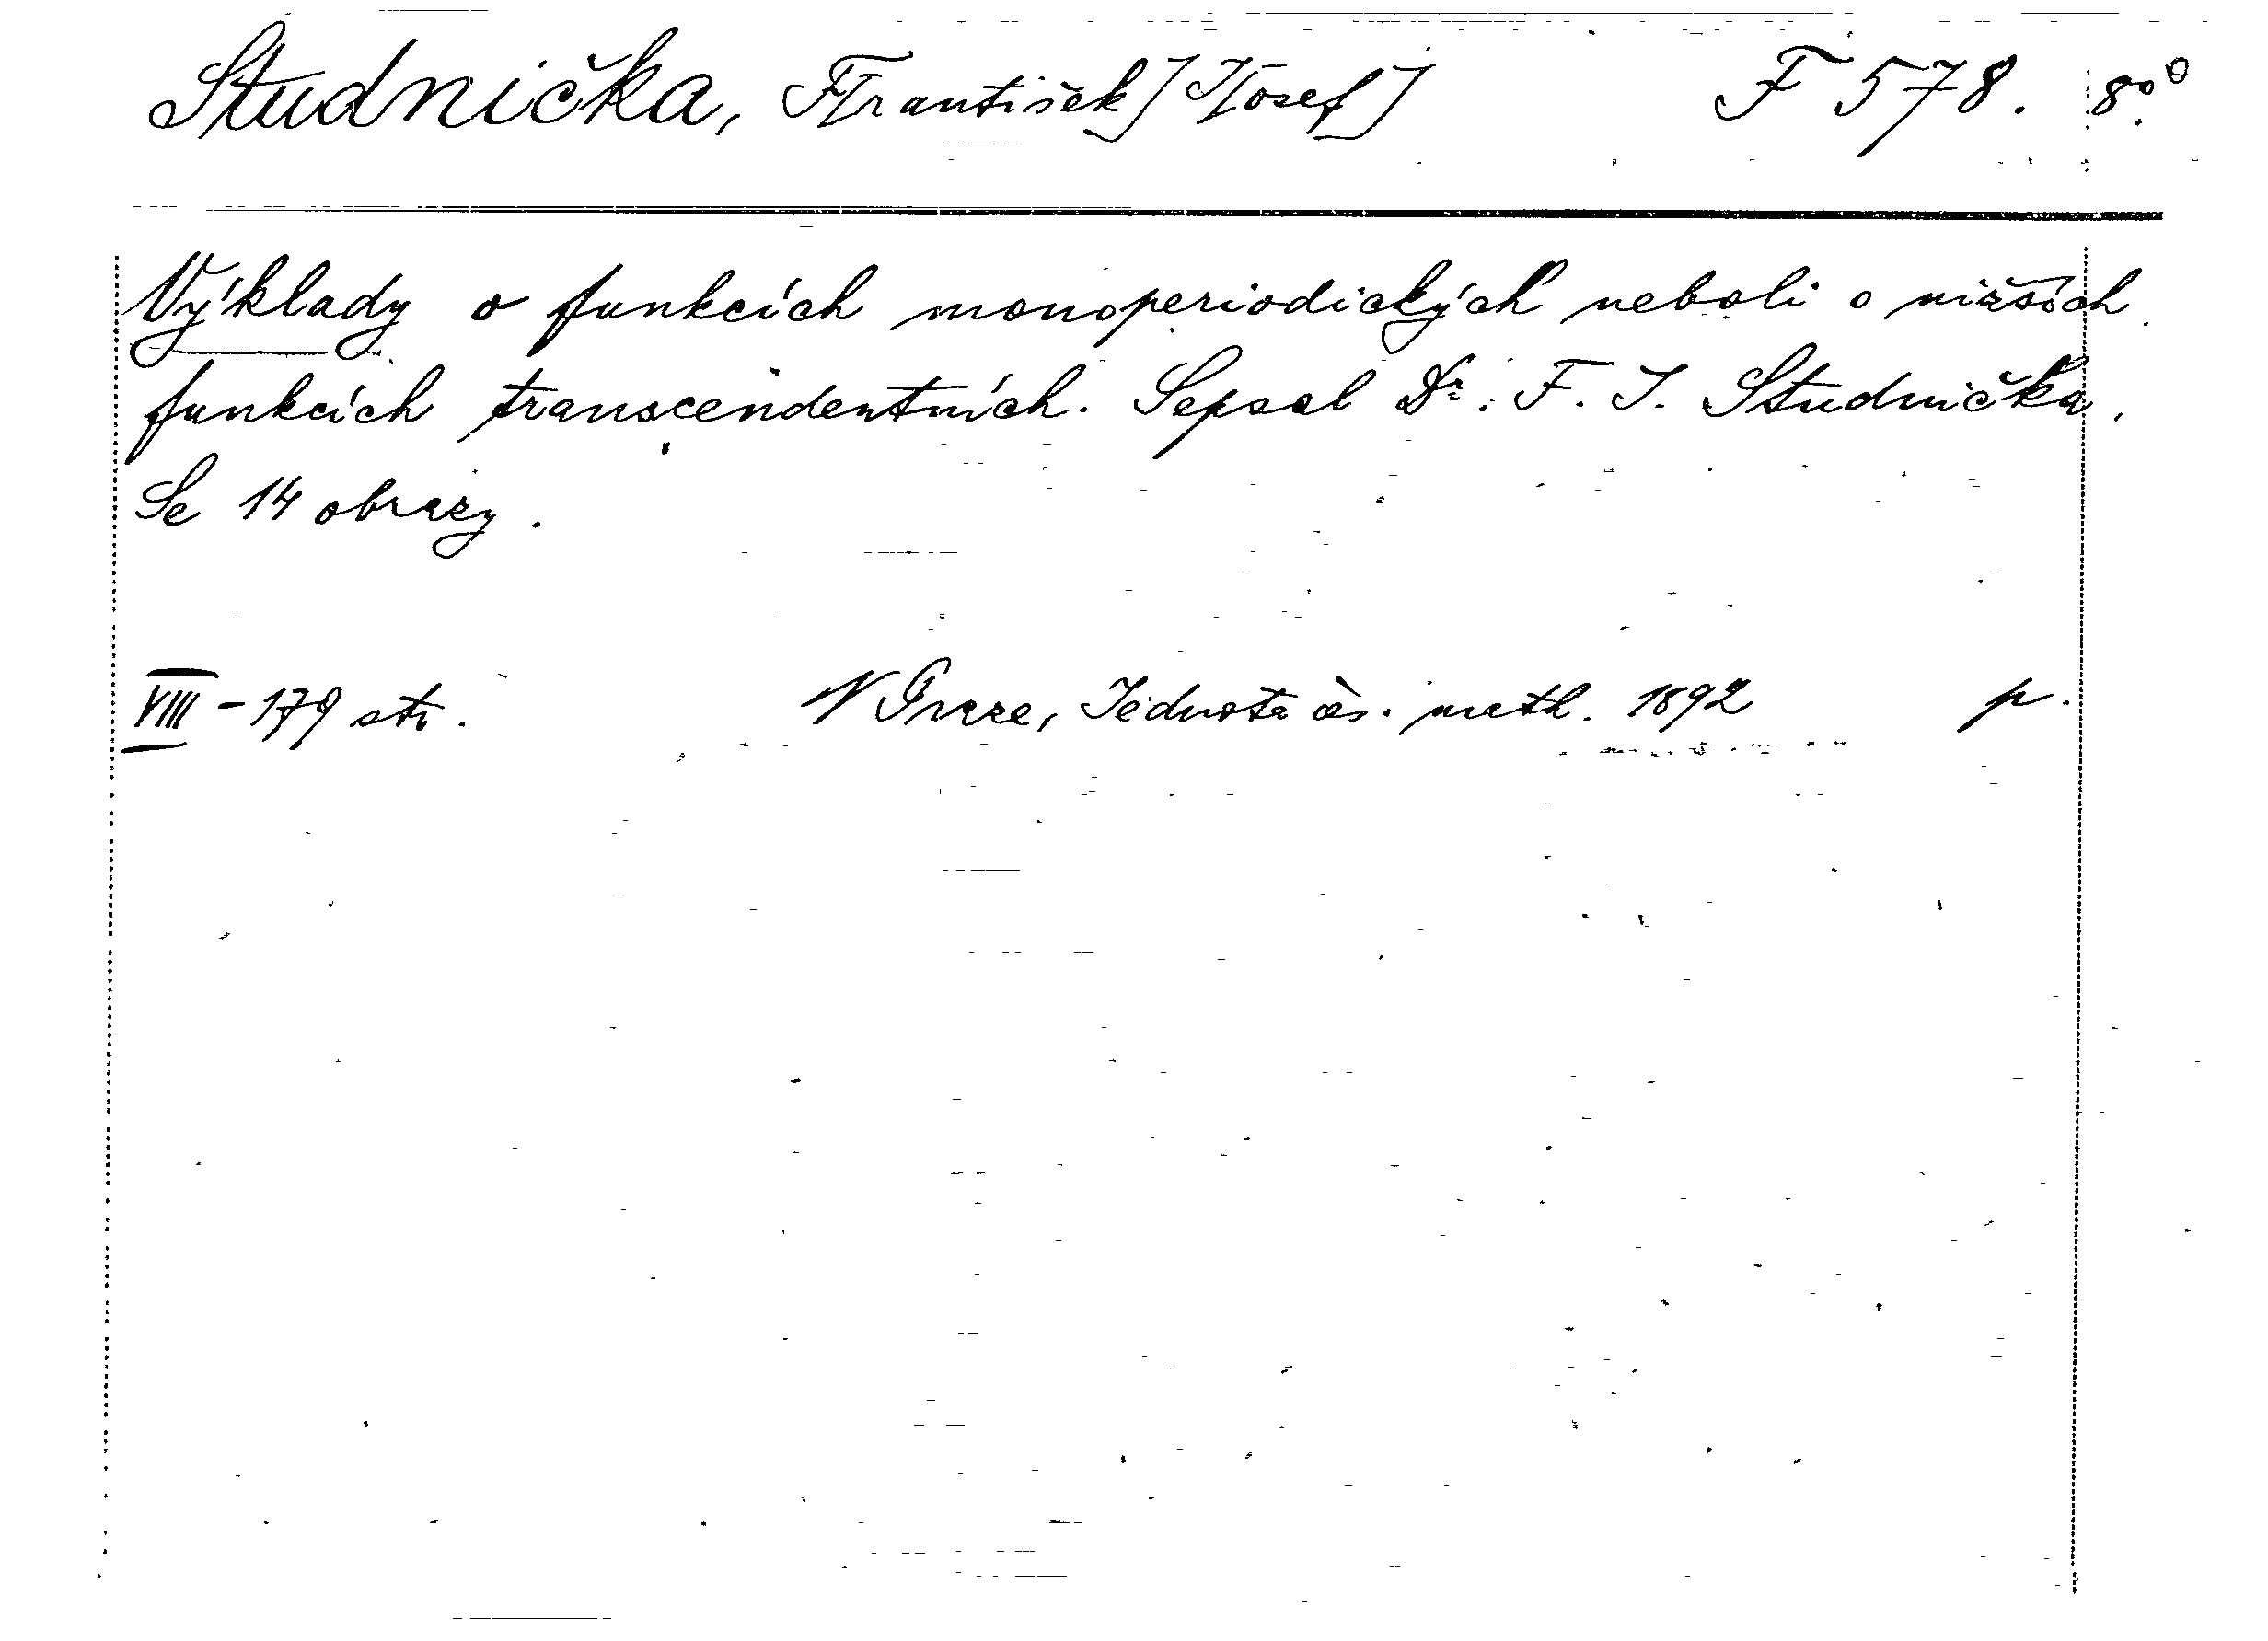 Studnička, F[rantišek] J[osef] F 578. 8°
Výklady o funkcích monoperiodických neboli o nižších
funkcích transcendentních. Sepsal Dr. F. J. Studnička.
Se 14 obrazy.
VIII - 179 str. V Praze, Jednota čes. math. 1892 p.